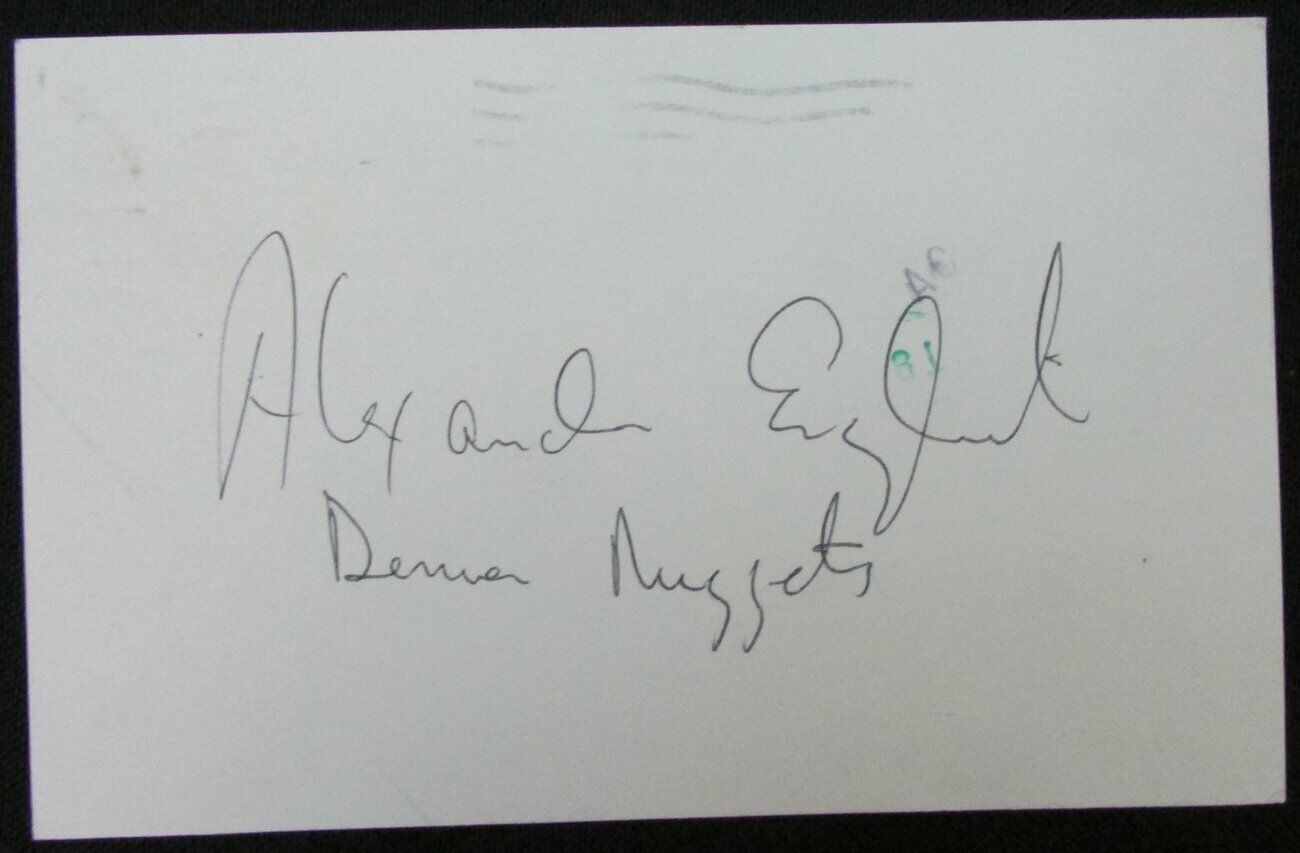 Alexander English
Denver Nuggets